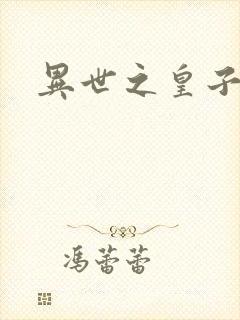 異世之皇子
馮蕾蕾